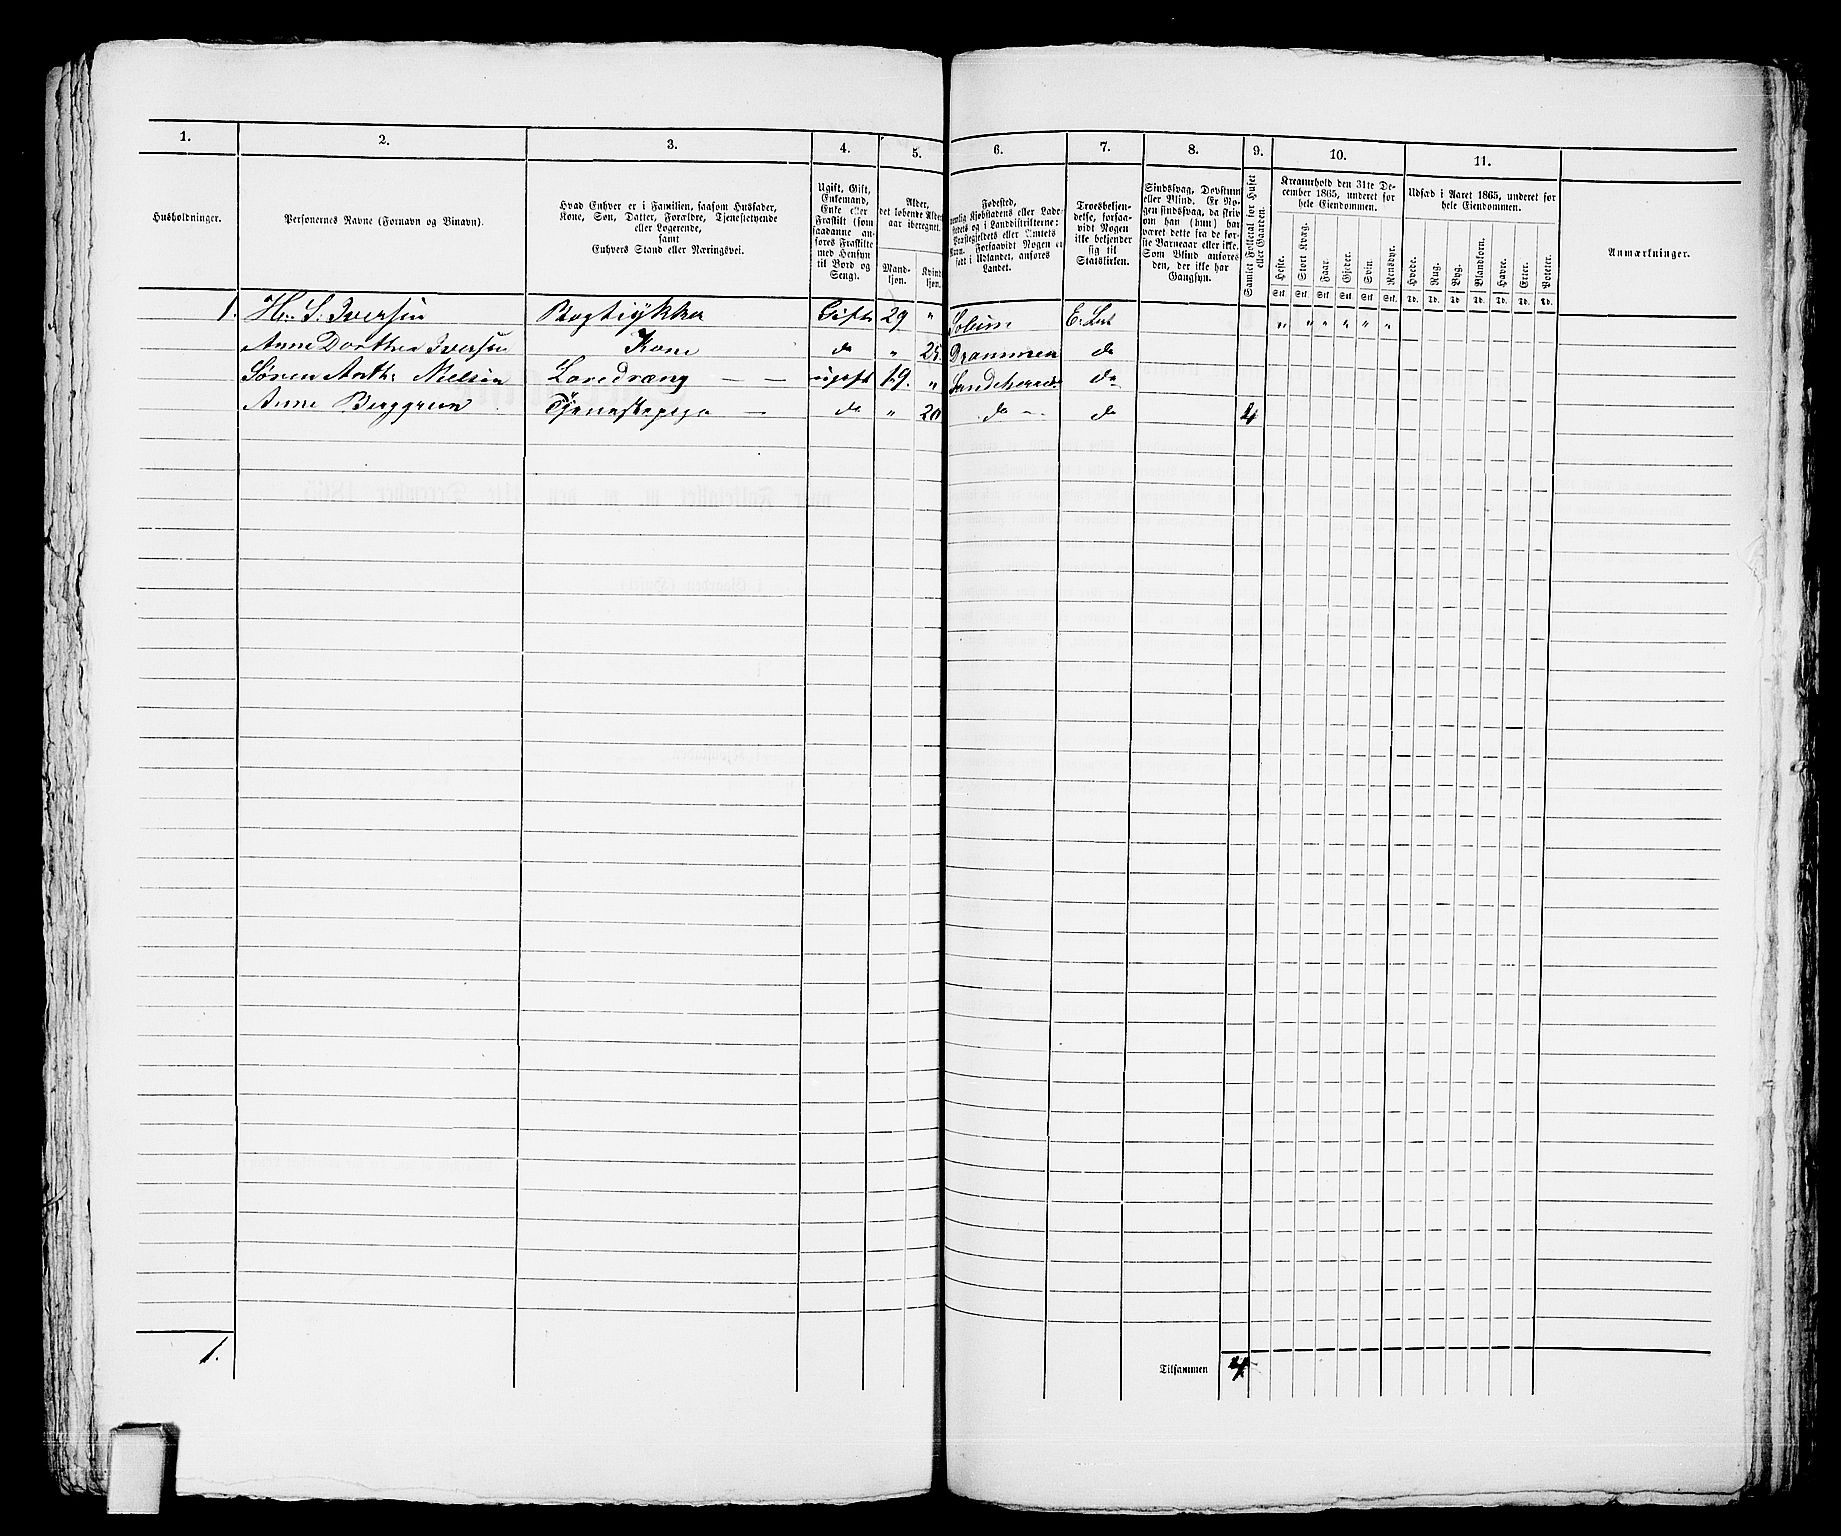 1. 2. 3. 4. 5. 6. 7. 8. 9. 10. 11.
Husholdninger.
Personernes Navne (Fornavn og Binavn).
Hvad Enhver er i Familien, saasom Husfader,
Kone, Søn, Datter, Forældre, Tjenestetyende
eller Logerende,
samt
Enhvers Stand eller Næringsvei.
Ugift, Gift,
Enkemand,
Enke eller
Fraskilt (som
saadanne an-
føres Fraskilte
med Hensyn
til Bord og
Seng).
Alder,
det løbende Alders-
aar iberegnet.
Mand-
kjøn.
Kvind-
kjøn.
Fødested,
nemlig Kjøbstadens eller Lade-
stedets og i Landdistrikterne:
Præstegjeldets eller Amtets
Navn. Forsaavidt Nogen er
født i Udlandet, anføres
Landet.
Troesbekjen-
delse, forsaa-
vidt Nogen
ikke bekjender
sig til
Statskirken.
Sindssvag, Døvstum
eller Blind. Er No-
gen sindssvag, da skriv
om han (hun) har
været dette fra de før-
ste Barneaar eller ikke.
Som Blind anføres
den, der ikke har
Gangsyn.
Samlet Folketal for Huset
eller Gaarden.
Kreaturhold den 31te De-
cember 1865, underet for
hele Eiendommen.
Heste. Stort Kvæg. Faar. Gjeder. Svin. Rensdyr.
Stk. Stk. Stk. Stk. Stk. Stk.
Udsæd i Aaret 1865, underet for
hele Eiendommen.
Hvede. Rug. Byg. Blandkorn. Havre. Erter. Poteter.
Td. Td. Td. Td. Td. Td. Td.
Anmærkninger.
1. H. S. Iversen Bogtrykker Gift 29 " E. Lut " " " " " "
Anne Dorthea Iversen Kone do " 25 Drammen do
Søren Anth. Nielsen Læredreng — — ugift 19. " Sandeherred do
Anne Berggreen Tjenestepige — do " 20 do — do 4
1.
Tilsammen 4